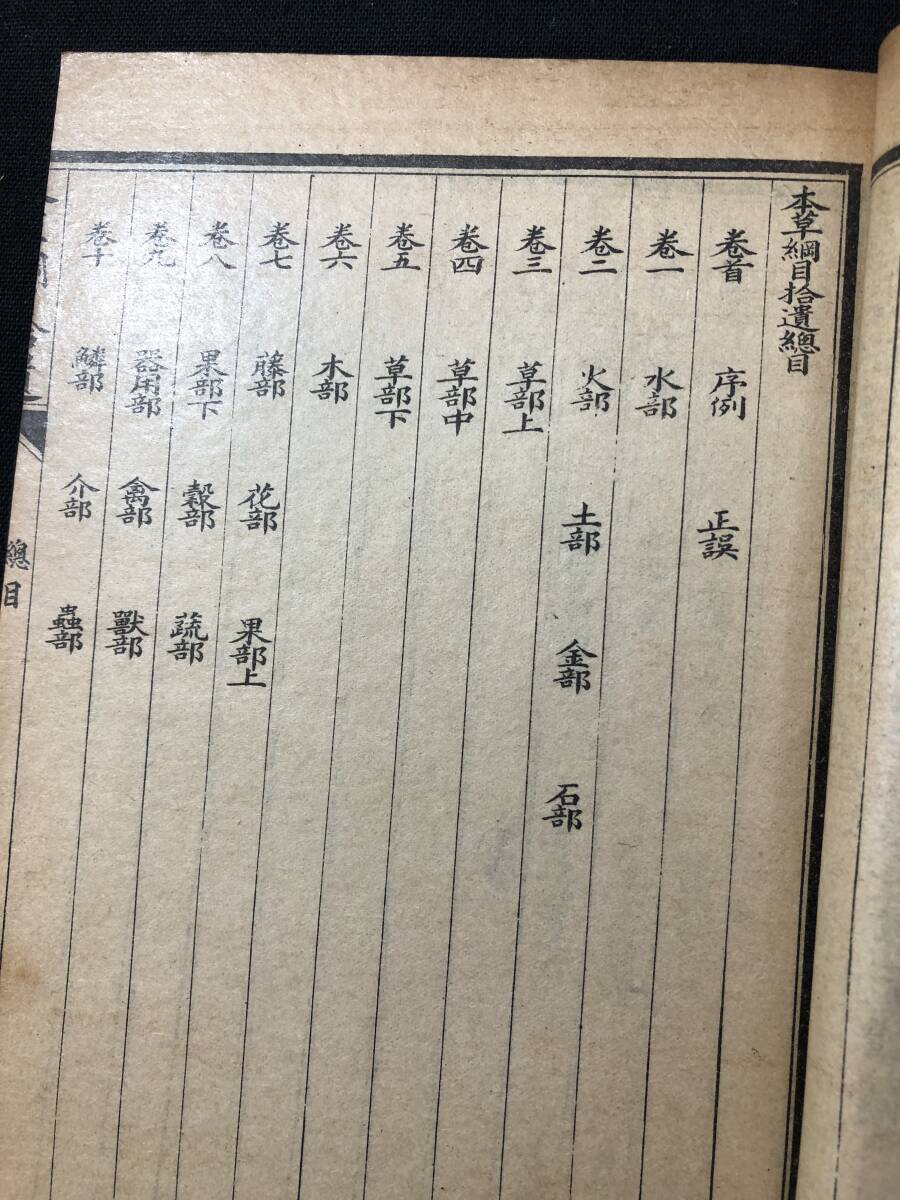 本草綱目拾遺總目
卷首 序例 正誤
卷一 水部
卷二 火部 土部 金部 石部
卷三 草部上
卷四 草部中
卷五 草部下
卷六 木部
卷七 藤部 花部 果部上
卷八 果部下 穀部 蔬部
卷九 器用部 禽部 獸部
卷十 鱗部 介部 蟲部
總目